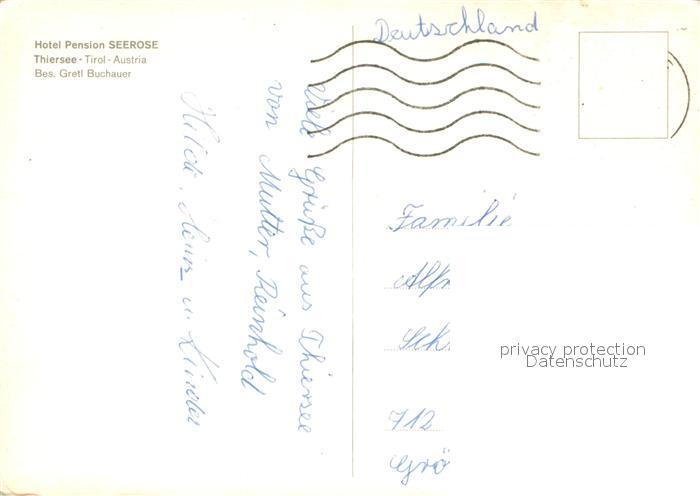 Hotel Pension SEEROSE
Thiersee - Tirol - Austria
Bes. Gretl Buchauer
Viele Grüße aus Thiersee
von Mutter, Reinhold
Hilde, Heinz u. Kinder
Deutschland
Familie
Alfr
Sch
712
Grö
privacy protection
Datenschutz